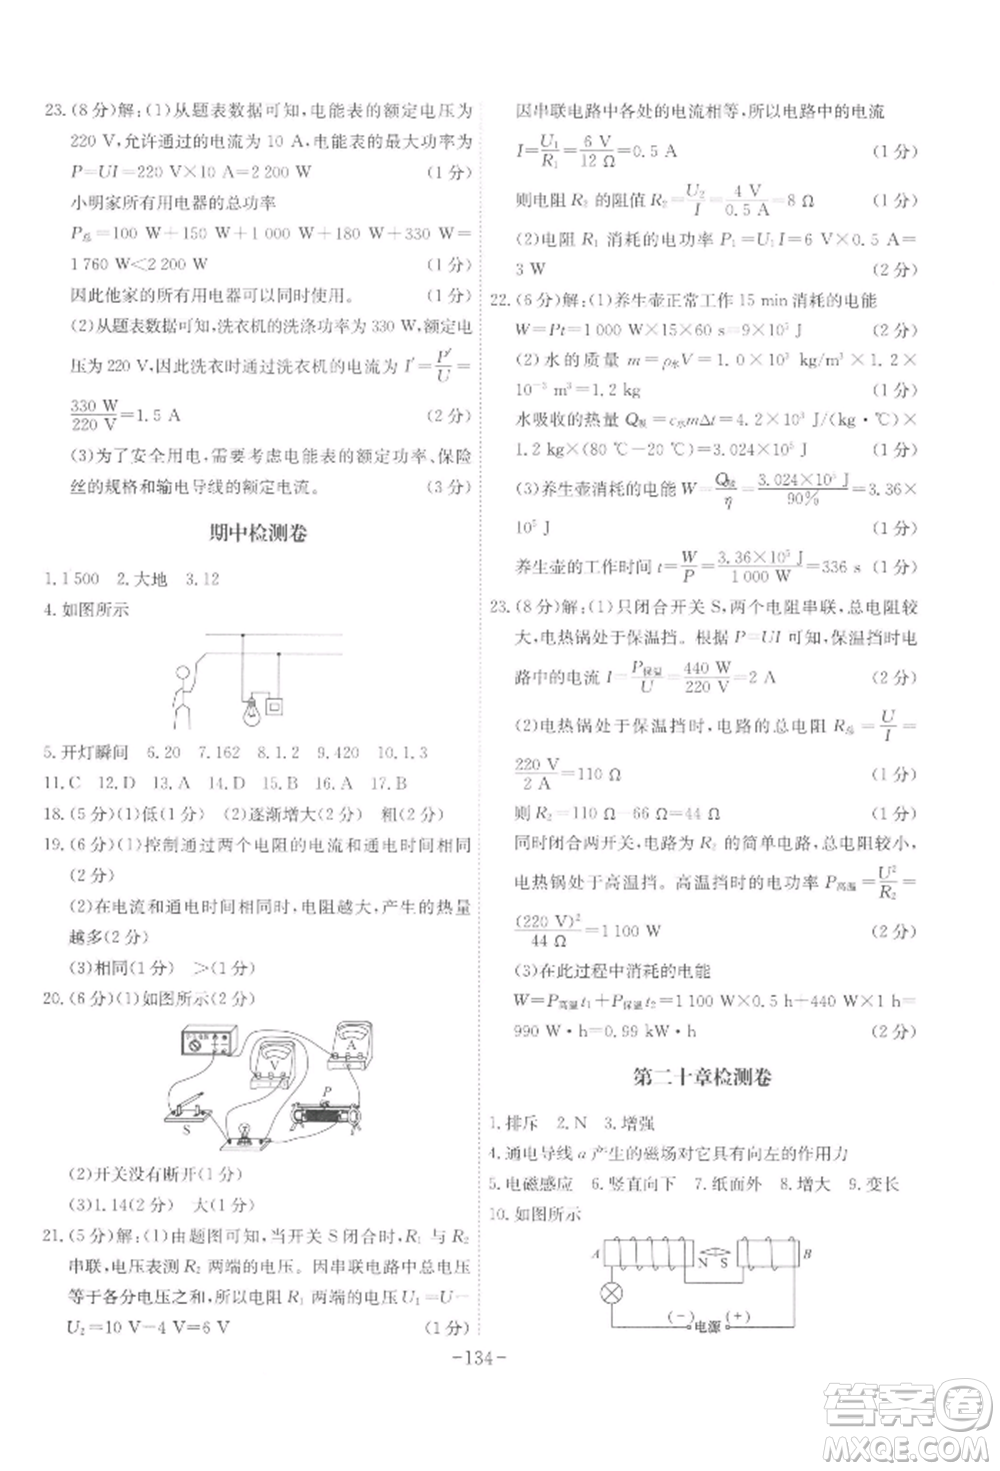 23.(8分)解:(1)从题表数据可知,电能表的额定电压为
220 V,允许通过的电流为 10 A,电能表的最大功率为
P=UI=220 V×10 A=2 200 W (1分)
小明家所有用电器的总功率
P总=100 W+150 W+1 000 W+180 W+330 W=
1 760 W<2 200 W (1分)
因此他家的所有用电器可以同时使用。 (1分)
(2)从题表数据可知,洗衣机的洗涤功率为 330 W,额定电
压为 220 V,因此洗衣时通过洗衣机的电流为 I′=P′/U=
330 W/220 V=1.5 A (2分)
(3)为了安全用电,需要考虑电能表的额定功率、保险
丝的规格和输电导线的额定电流。 (3分)
期中检测卷
1.1 500 2.大地 3.12
4.如图所示
5.开灯瞬间 6.20 7.162 8.1.2 9.420 10.1.3
11.C 12.D 13.A 14.D 15.B 16.A 17.B
18.(5分)(1)低(1分) (2)逐渐增大(2分) 粗(2分)
19.(6分)(1)控制通过两个电阻的电流和通电时间相同
(2分)
(2)在电流和通电时间相同时,电阻越大,产生的热量
越多(2分)
(3)相同(1分) >(1分)
20.(6分)(1)如图所示(2分)
V
A
P
S
(2)开关没有断开(1分)
(3)1.14(2分) 大(1分)
21.(5分)解:(1)由题图可知,当开关S闭合时,R1 与 R2
串联,电压表测 R2 两端的电压。因串联电路中总电压
等于各分电压之和,所以电阻 R1 两端的电压 U1=U-
U2=10 V-4 V=6 V (1分)
因串联电路中各处的电流相等,所以电路中的电流
I=U1/R1=6 V/12 Ω=0.5 A (1分)
则电阻 R2 的阻值 R2=U2/I=4 V/0.5 A=8 Ω (1分)
(2)电阻 R1 消耗的电功率 P1=U1I=6 V×0.5 A=
3 W (2分)
22.(6分)解:(1)养生壶正常工作 15 min 消耗的电能
W=Pt=1 000 W×15×60 s=9×10⁵ J (2分)
(2)水的质量 m=ρ水V=1.0×10³ kg/m³×1.2×
10⁻³ m³=1.2 kg (1分)
水吸收的热量 Q吸=c水mΔt=4.2×10³ J/(kg·℃)×
1.2 kg×(80 ℃-20 ℃)=3.024×10⁵ J (1分)
(3)养生壶消耗的电能 W=Q吸/η=3.024×10⁵ J/90%=3.36×
10⁵ J (1分)
养生壶的工作时间 t=W/P=3.36×10⁵ J/1 000 W=336 s (1分)
23.(8分)解:(1)只闭合开关 S,两个电阻串联,总电阻较
大,电热锅处于保温挡。根据 P=UI 可知,保温挡时电
路中的电流 I=P保温/U=440 W/220 V=2 A (2分)
(2)电热锅处于保温挡时,电路的总电阻 R总=U/I=
220 V/2 A=110 Ω (1分)
则 R2=110 Ω-66 Ω=44 Ω (1分)
同时闭合两开关,电路为 R2 的简单电路,总电阻较小,
电热锅处于高温挡。高温挡时的电功率 P高温=U²/R2=
(220 V)²/44 Ω=1 100 W (2分)
(3)在此过程中消耗的电能
W=P高温t1+P保温t2=1 100 W×0.5 h+440 W×1 h=
990 W·h=0.99 kW·h (2分)
第二十章检测卷
1.排斥 2.N 3.增强
4.通电导线 a 产生的磁场对它具有向左的作用力
5.电磁感应 6.竖直向下 7.纸面外 8.增大 9.变长
10.如图所示
A N S B
(-) (+)
电源
-134-
答案卷
MXQE.COM